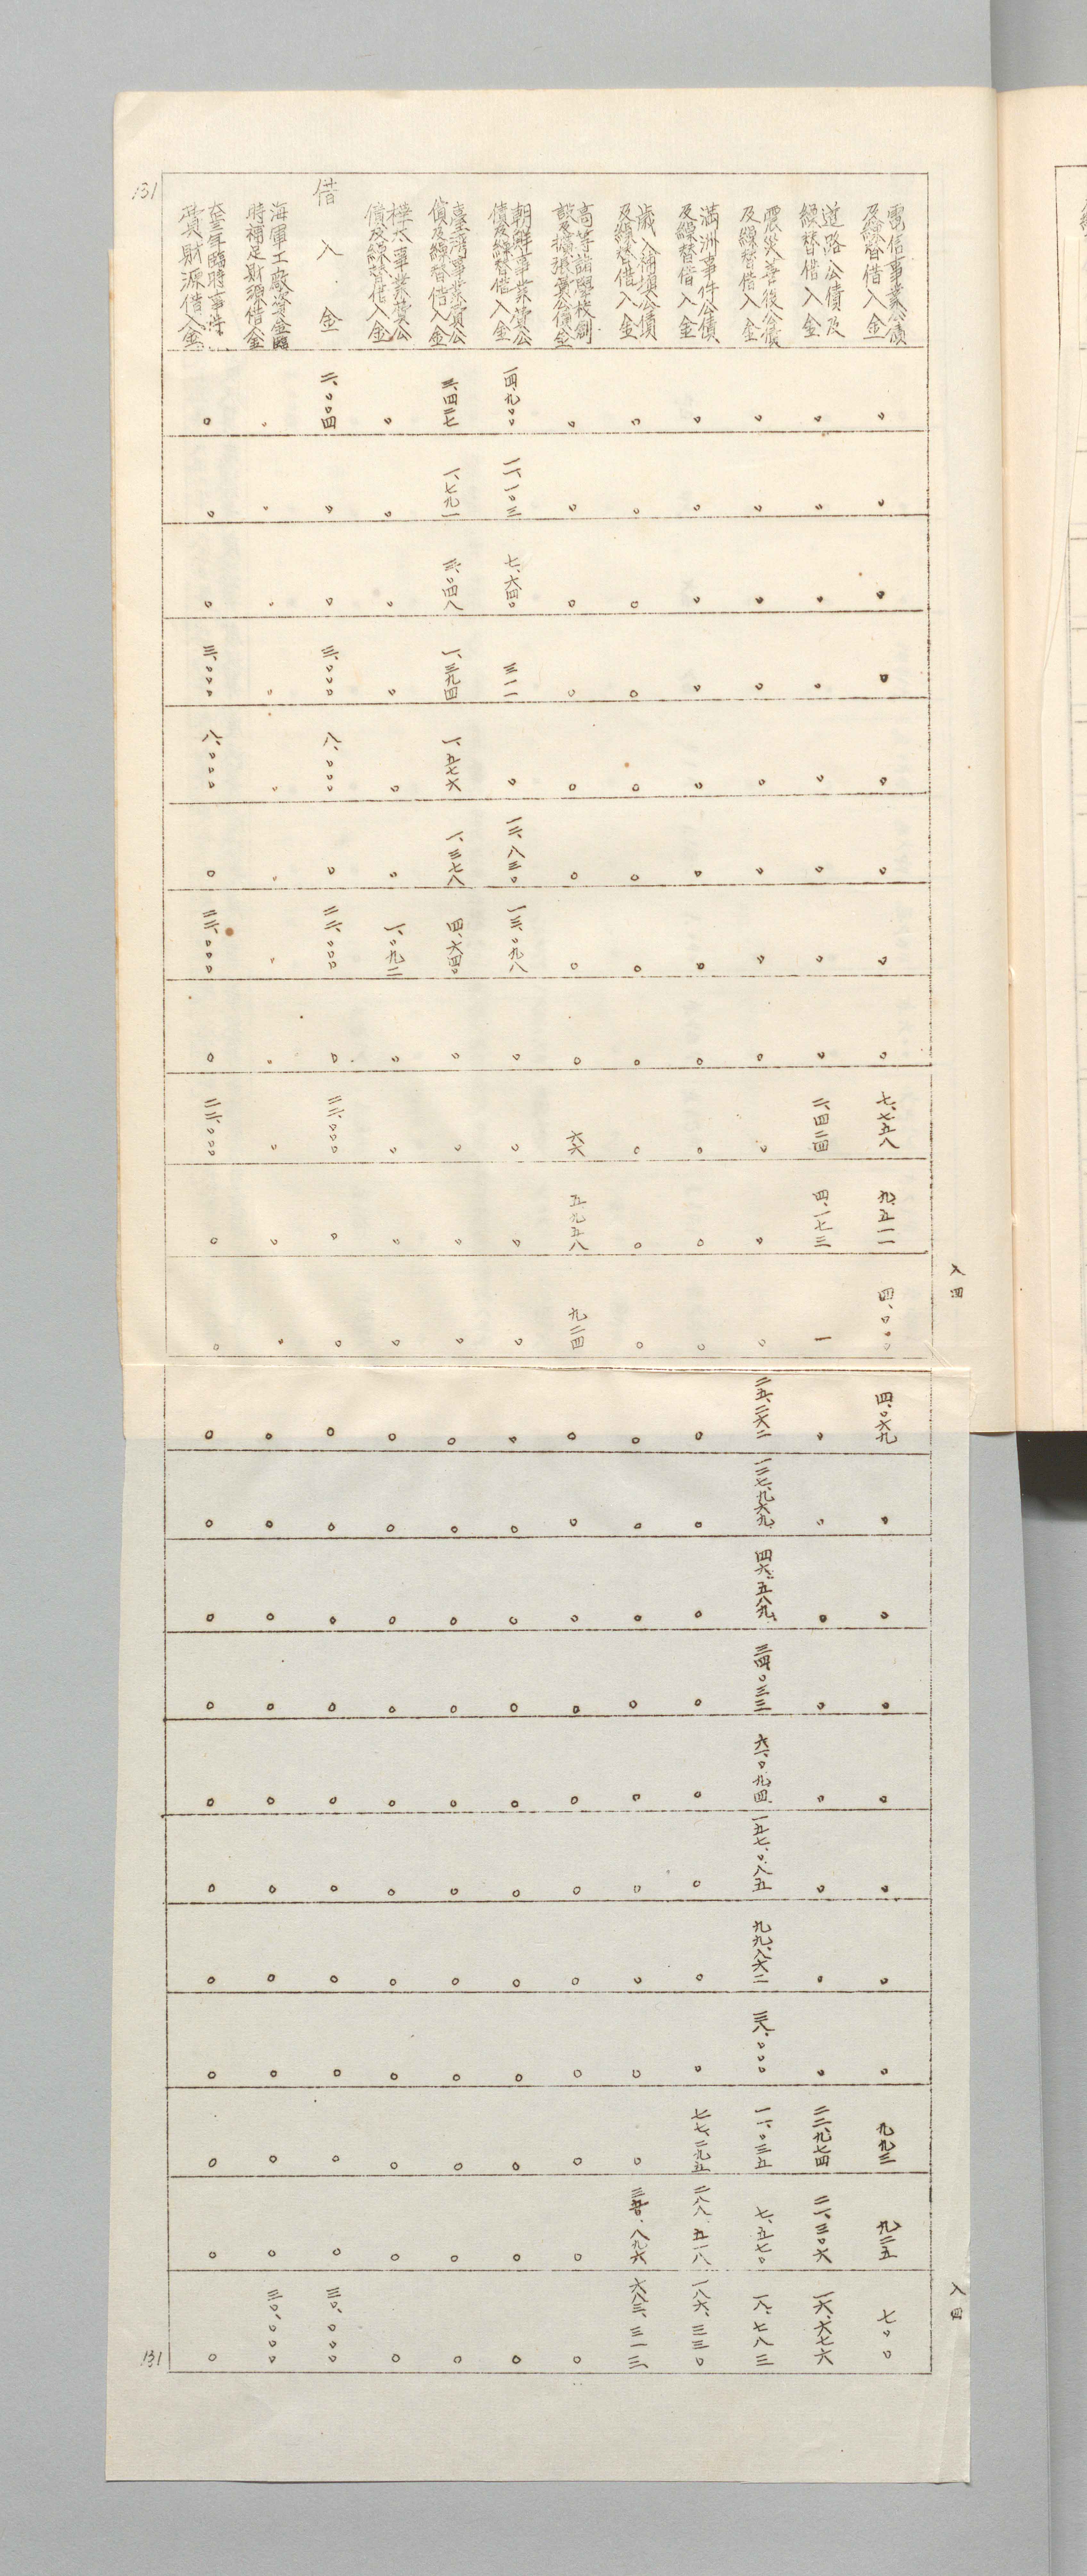 131
電信事業公債及繰替借入金 〃 〃 〃 〇 〃 〃 〃 〃 七、七五八 九、五一一 四、〇〇〇 四、〇六九 〃 〃 〃 〃 〃 〃 〃 九九三 九二五 七〇〇
道路公債及繰替借入金 〃 〃 〃 〃 〃 〃 〃 〃 二、四二四 四、一七三 一 〃 〃 〃 〃 〃 〃 〃 〃 二二、九七四 二一、三〇六 一六、六七六
震災善後公債及繰替借入金 〃 〃 〃 〃 〃 〃 〃 〃 〃 〃 〇 二五、二六二 一二七、九六九 四六、五八九 三四、〇三三 六一、〇九四 一五七、〇八五 九九、八六二 三八、〇〇〇 一一、〇三五 七、五七〇 一八、七八三
満洲事件公債及繰替借入金 〃 〃 〃 〃 〃 〃 〇 〇 〇 〇 〇 〇 〇 〇 〇 〇 〇 〇 〃 七七、二九五 二八八、五一八 一八六、三三〇
歳入補塡公債及繰替借入金 〇 〇 〇 〇 〇 〇 〇 〇 〇 〇 〇 〇 〇 〇 〇 〇 〇 〇 〇 〇 八九六 六八三、三一三
高等諸學校創設及擴張費公債金 〇 〇 〇 〇 〇 〇 〇 〇 六六 五九五八 九二四 〇 〇 〇 〇 〇 〇 〇 〇 〇 〇 〇
朝鮮事業費公債及繰替借入金 一四、九〇〇 一一、一〇三 七、六四〇 三一一 〇 一三、八三〇 一三、〇九八 〃 〃 〃 〃 〃 〇 〇 〇 〇 〇 〇 〇 〇 〇 〇
臺灣事業費公債及繰替借入金 三、四二七 一、七九一 三、〇四八 一、三九四 一、五七六 一、三七八 四、六四〇 〃 〃 〃 〃 〇 〇 〇 〇 〇 〇 〇 〇 〇 〇 〇
樺太事業費公債及繰替借入金 〃 〃 〃 〃 〃 〃 一、〇九二 〃 〃 〃 〃 〇 〇 〇 〇 〇 〇 〇 〇 〇 〇 〇
借入金 二、〇〇四 〃 〃 三、〇〇〇 八、〇〇〇 〃 二二、〇〇〇 〃 二二、〇〇〇 〃 〃 〇 〇 〇 〇 〇 〇 〇 〇 〇 〇 三〇、〇〇〇
海軍工廠資金臨時補足財源借入金 〃 〃 〃 〃 〃 〃 〃 〃 〃 〃 〃 〇 〇 〇 〇 〇 〇 〇 〇 〇 〇 三〇、〇〇〇
大正三年臨時事件費財源借入金 〇 〇 〇 三、〇〇〇 八、〇〇〇 〇 二二、〇〇〇 〇 二二、〇〇〇 〇 〇 〇 〇 〇 〇 〇 〇 〇 〇 〇 〇 〇
八四
八四
131